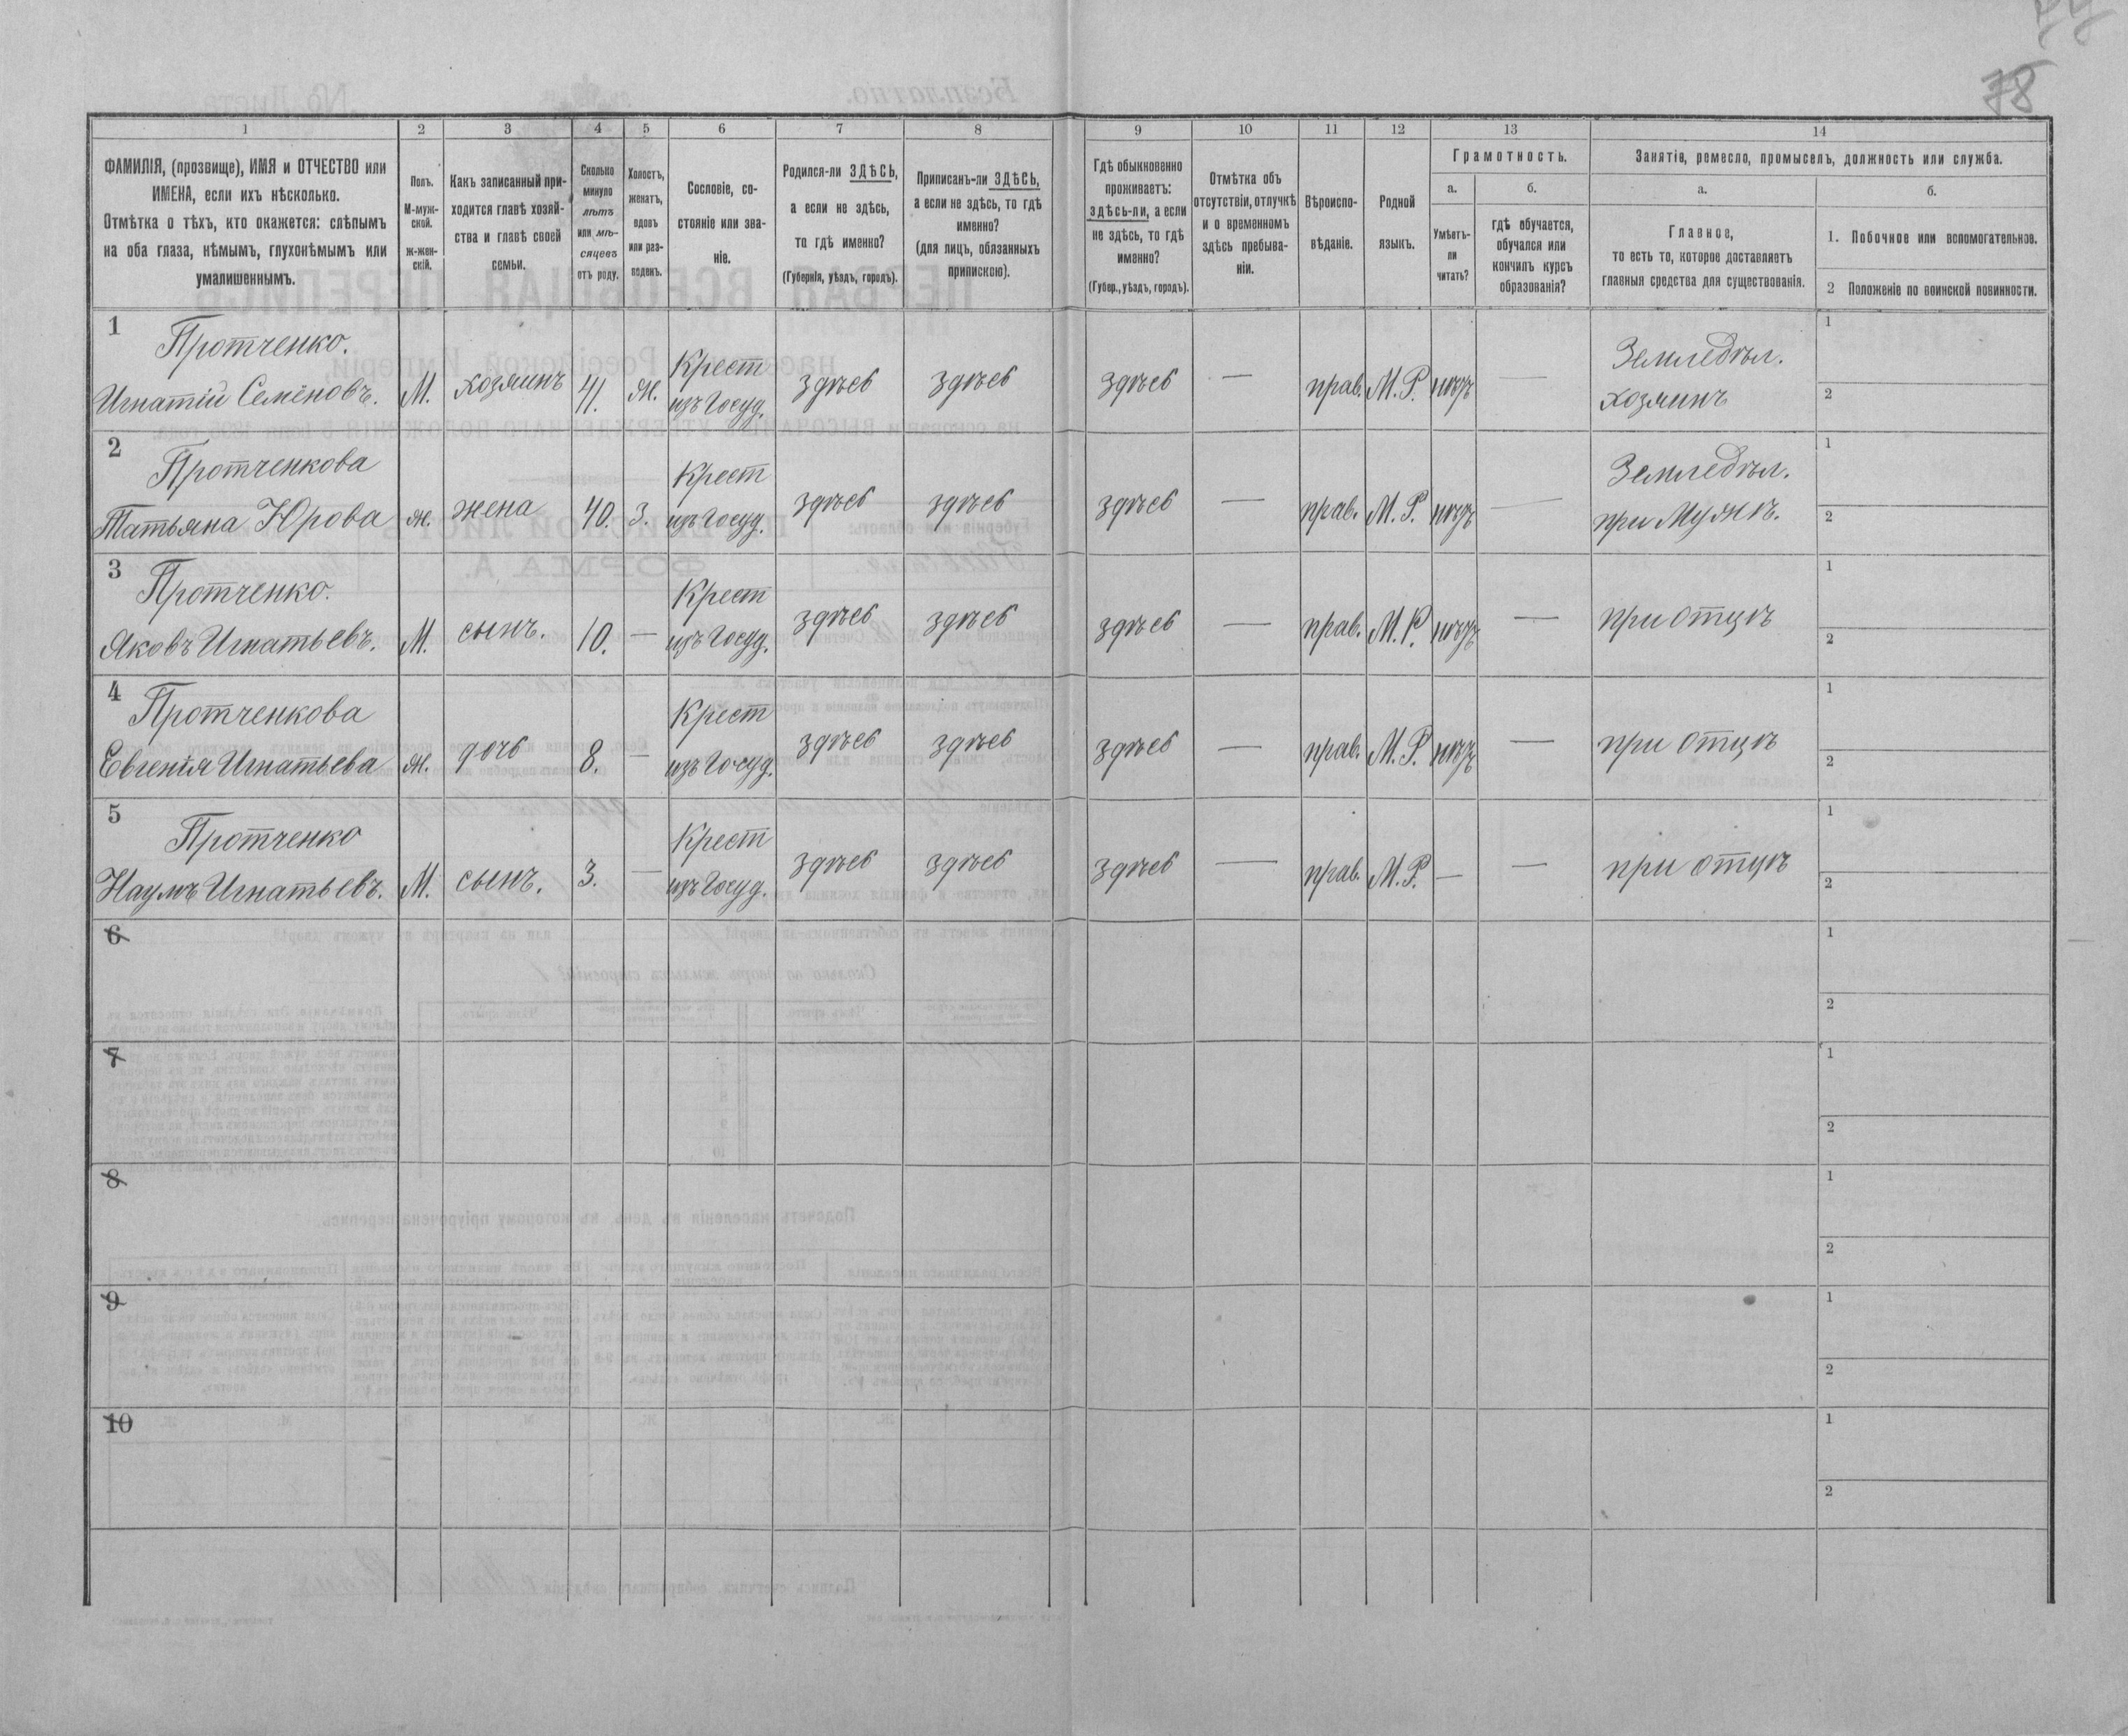 78
1 2 3 4 5 6 7 8 9 10 11 12 13 14
ФАМИЛІЯ, (прозвище), ИМЯ и ОТЧЕСТВО или
ИМЕНА, если ихъ нѣсколько.
Отмѣтка о тѣхъ, кто окажется: слѣпымъ
на оба глаза, нѣмымъ, глухонѣмымъ или
умалишеннымъ.
Полъ.
М-муж-
ской.
ж-жен-
скій.
Какъ записанный при-
ходится главѣ хозяй-
ства и главѣ своей
семьи.
Сколько
минуло
лѣтъ
или мѣ-
сяцевъ
отъ роду.
Холостъ,
женатъ,
вдовъ
или раз-
веденъ.
Сословіе, со-
стояніе или зва-
ніе.
Родился-ли ЗДѢСЬ,
а если не здѣсь,
то гдѣ именно?
(Губернія, уѣздъ, городъ).
Приписанъ-ли ЗДѢСЬ,
а если не здѣсь, то гдѣ
именно?
(для лицъ, обязанныхъ
припискою).
Гдѣ обыкновенно
проживаетъ:
здѣсь-ли, а если
не здѣсь, то гдѣ
именно?
(Губер., уѣздъ, городъ).
Отмѣтка объ
отсутствіи, отлучкѣ
и о временномъ
здѣсь пребыва-
ніи.
Вѣроиспо-
вѣданіе.
Родной
языкъ.
Грамотность.
а.
Умѣетъ-
ли
читать?
б.
гдѣ обучается,
обучался или
кончилъ курсъ
образованія?
Занятіе, ремесло, промыселъ, должность или служба.
а.
Главное,
то есть то, которое доставляетъ
главныя средства для существованія.
б.
1. Побочное или вспомогательное.
2 Положеніе по воинской повинности.
1 Протченко.
Игнатій Семёновъ. М. хозяинъ 41. ж. Крест изъ Госуд. здѣсь здѣсь здѣсь — прав. М.Р. нѣтъ — Земледѣл. хозяинъ 1
2
2 Протченкова
Татьяна Юрова ж. жена 40. З. Крест изъ Госуд. здѣсь здѣсь здѣсь — прав. М.Р. нѣтъ — Земледѣл. при Мужѣ. 1
2
3 Протченко.
Яковъ Игнатьевъ. М. сынъ. 10. — Крест изъ Госуд. здѣсь здѣсь здѣсь — прав. М.Р. нѣтъ — при отцѣ 1
2
4 Протченкова
Евгенія Игнатьева ж. дочь 8. — Крест изъ Госуд. здѣсь здѣсь здѣсь — прав. М.Р. нѣтъ — при отцѣ 1
2
5 Протченко
Наумъ Игнатьевъ. М. сынъ. 3. — Крест изъ Госуд. здѣсь здѣсь здѣсь — прав. М.Р. — — при отцѣ 1
2
6 1
2
7 1
2
8 1
2
9 1
2
10 1
2